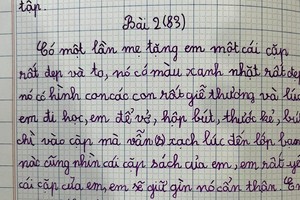 tập.
Bài 2 (83)
Có một lần mẹ tặng em một cái cặp
rất đẹp và to, nó có màu xanh nhạt rất đẹp
nó có hình con các con rất giễ thương và lúc
em đi học, em để vở, hộp bút, thước kẻ, bút
chì vào cặp mà vẫn xạch lúc đến lớp bạn
nào cũng nhìn cái cặp sách của em, em rất yê
cái cặp của em, em sẽ giữ gìn nó cẩn thận. Em